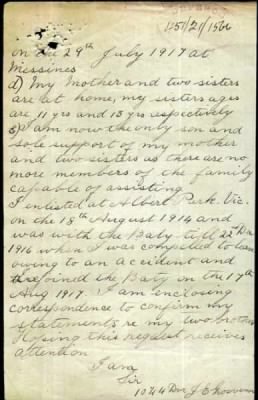 51/21/1566
on the 29th July 1917 at
Messines
d) My Mother and two sisters
are at home, my sisters ages
are 11 yrs and 13 yrs respectively
I am now the only son and
sole support of my mother
and two sisters as there are no
more members of the family
capable of assisting
I enlisted at Albert Park. Vic.
on the 18th August 1914 and
was with the Baty till 22nd
1916 when I was compelled to leave
owing to an accident and
rejoined the Baty on the 17th
Aug 1917. I am enclosing
correspondence to confirm my
statements re my two brothers
Hoping this request receives
attention
I am
Sir
Dvr J E